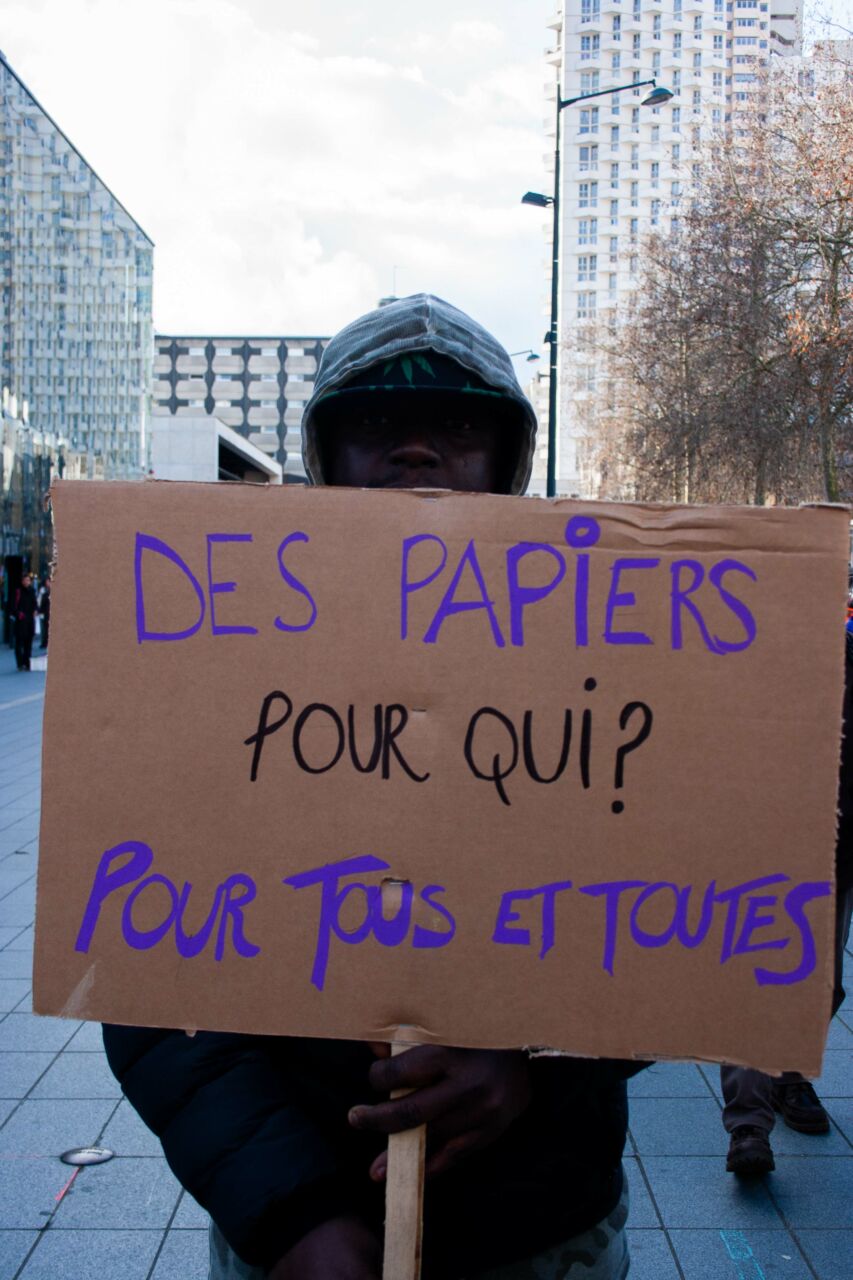 DES PAPIERS
POUR QUI?
POUR TOUS ET TOUTES